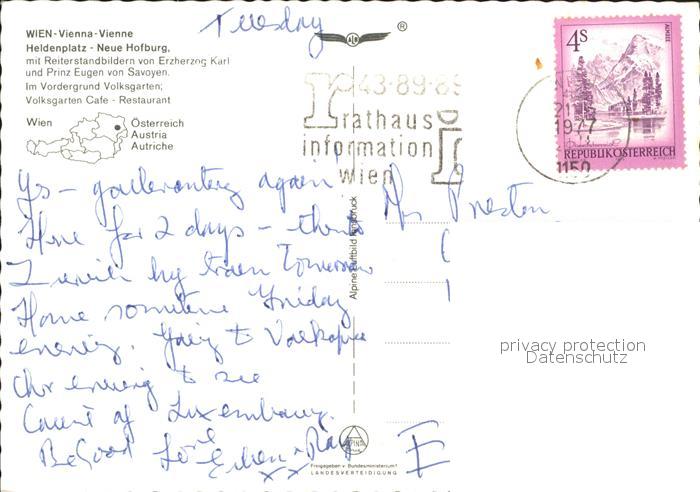 Tuesday
WIEN - Vienna - Vienne
Heldenplatz - Neue Hofburg,
mit Reiterstandbildern von Erzherzog Karl
und Prinz Eugen von Savoyen.
Im Vordergrund Volksgarten;
Volksgarten Cafe - Restaurant
Wien
Österreich
Austria
Autriche
®
43-89-89
rathaus
information
wien
1977
1150
4S
ALMSEE
REPUBLIK ÖSTERREICH
Yes - gallivanting again
Here for 2 days - then to
Zurich by train tomorrow
Home sometime Friday
evening. Going to Volksoper
this evening to see
Count of Luxembourg.
Be Good Love
Eileen + Ray
xx
Mr Preston
E
Alpine Luftbild Innsbruck
privacy protection
Datenschutz
Freigegeben v. Bundesministerium f.
LANDESVERTEIDIGUNG